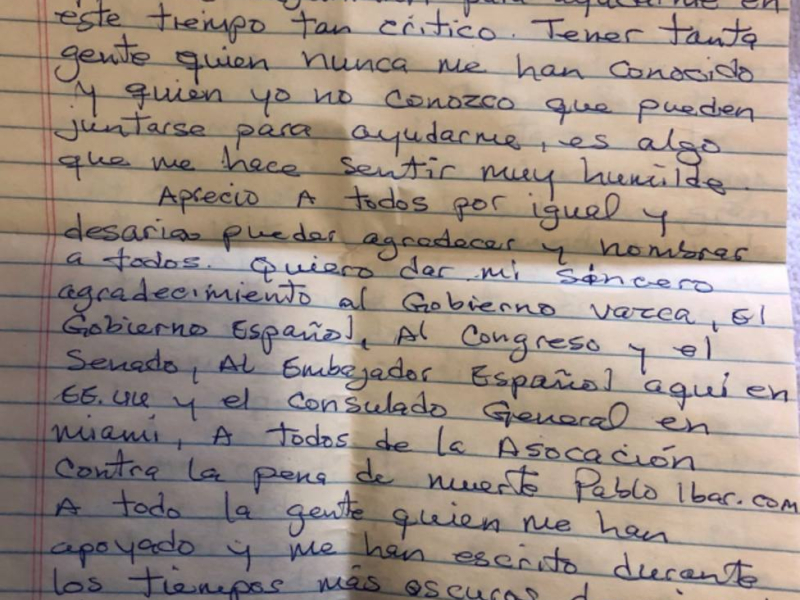 este tiempo tan critico. Tener tanta
gente quien nunca me han conocido
y quien yo no conozco que pueden
juntarse para ayudarme, es algo
que me hace sentir muy humilde.
Aprecio A todos por igual y
desaria pueder agradecer y nombrar
a todos. Quiero dar mi sincero
agradecimiento al Gobierno varca, El
Gobierno Español, Al Congreso y el
Senado, Al Embajador Español aquí en
EE.UU y el Consulado General en
miami, A todos de la Asocación
Contra la pena de muerte Pablo Ibar.com
A todo la gente quien me han
apoyado y me han escrito durante
los tiempos más oscuros